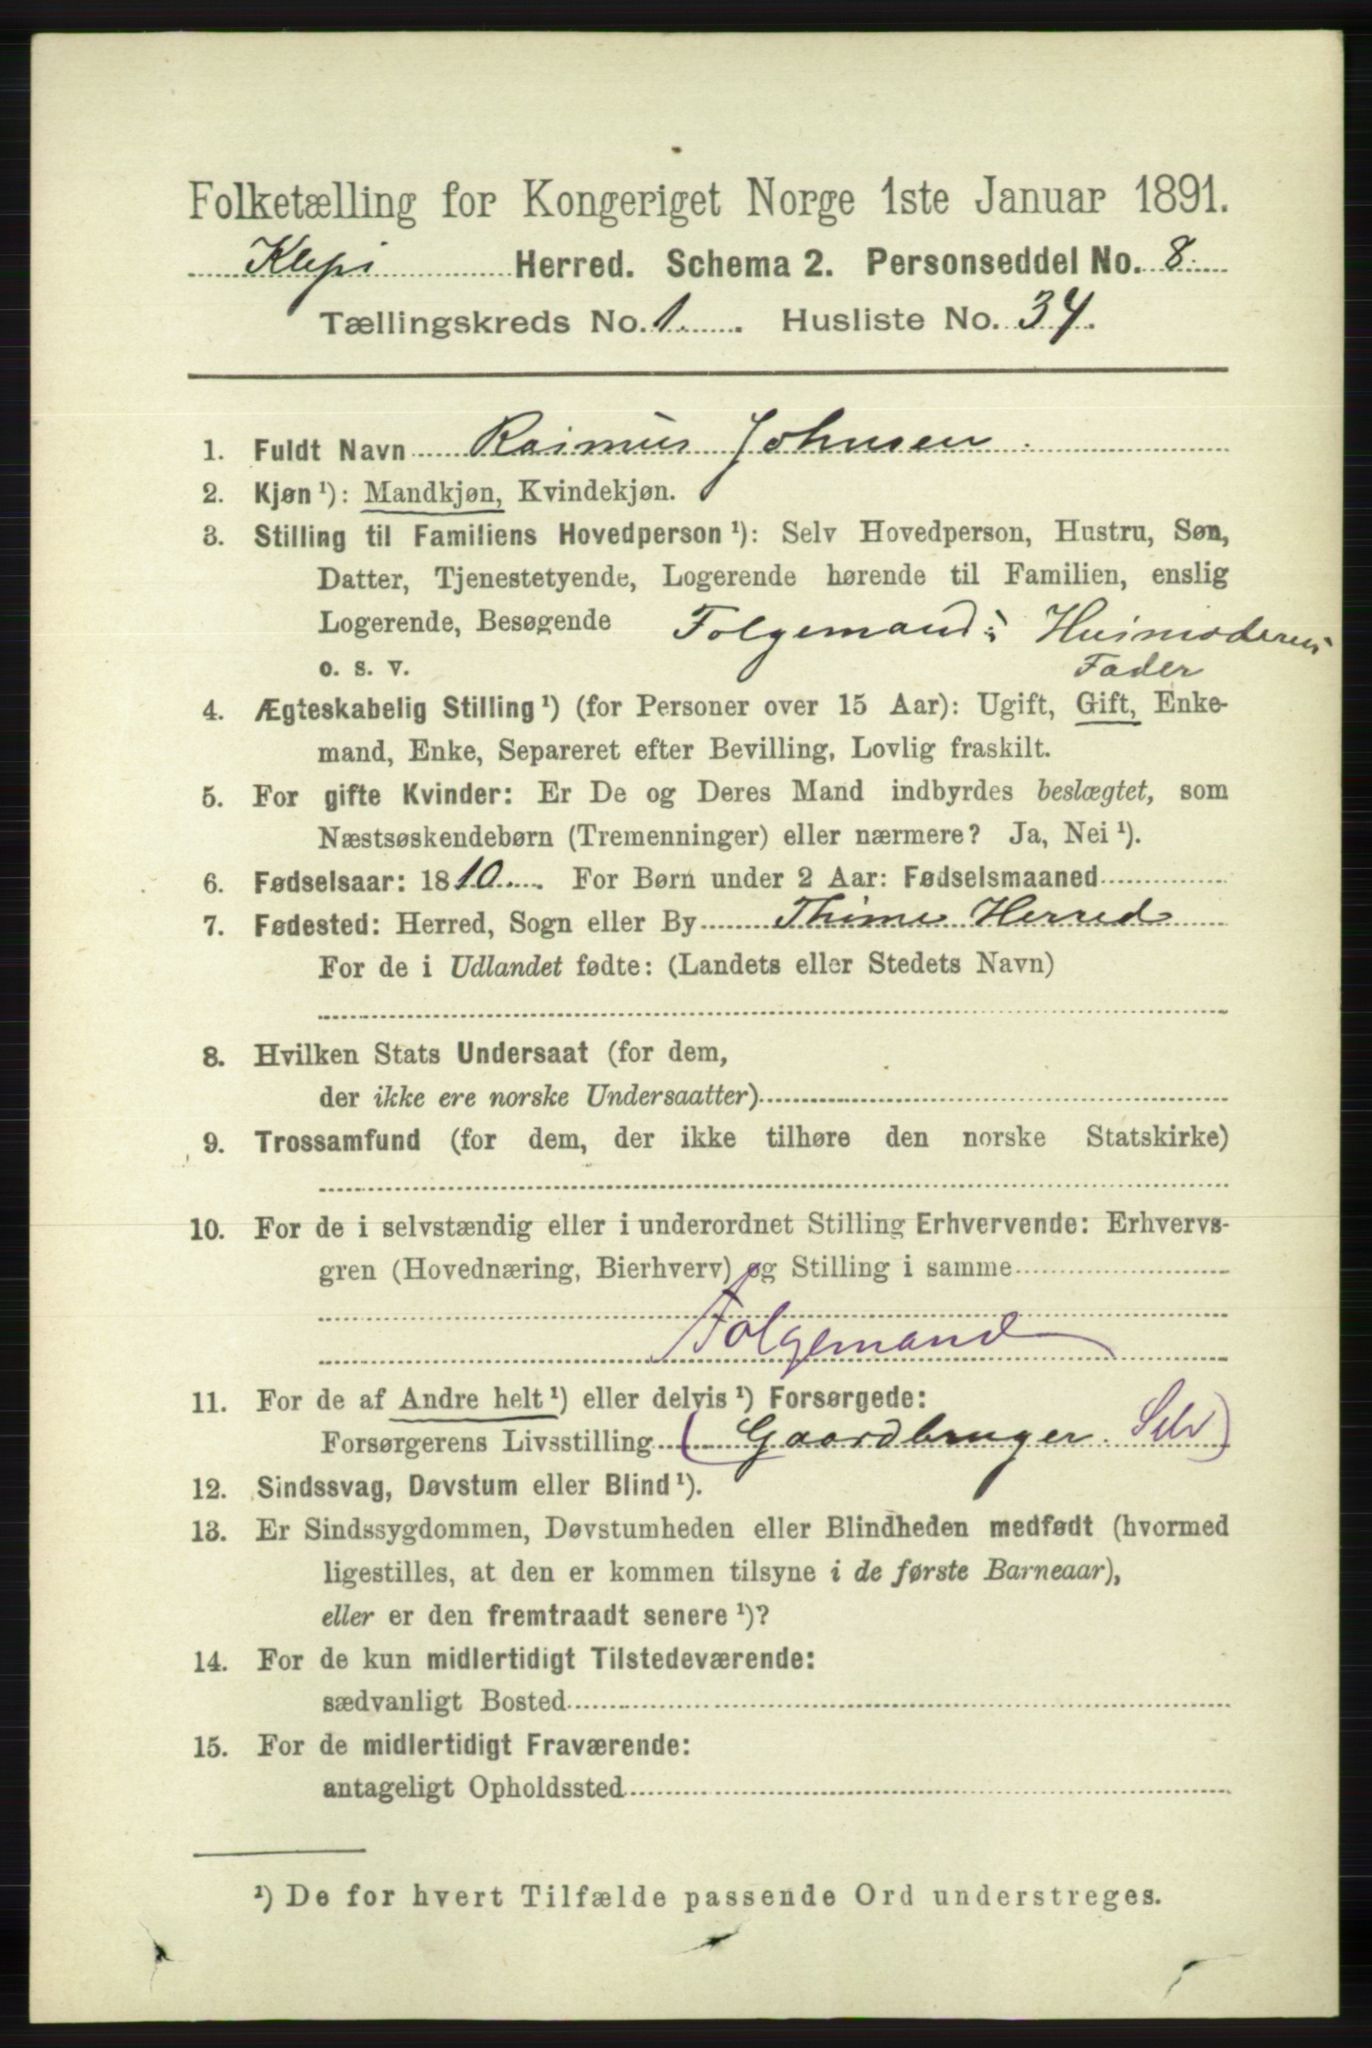 Folketælling for Kongeriget Norge 1ste Januar 1891.
Klepi Herred. Schema 2. Personseddel No. 8.
Tællingskreds No. 1. Husliste No. 34.
1. Fuldt Navn Rasmus Johnsen
2. Kjøn ¹): Mandkjøn, Kvindekjøn.
3. Stilling til Familiens Hovedperson ¹): Selv Hovedperson, Hustru, Søn,
Datter, Tjenestetyende, Logerende hørende til Familien, enslig
Logerende, Besøgende Folgemand: Husmoderens
o. s. v. Fader
4. Ægteskabelig Stilling ¹) (for Personer over 15 Aar): Ugift, Gift, Enke-
mand, Enke, Separeret efter Bevilling, Lovlig fraskilt.
5. For gifte Kvinder: Er De og Deres Mand indbyrdes beslægtet, som
Næstsøskendebørn (Tremenninger) eller nærmere? Ja, Nei ¹).
6. Fødselsaar: 1810. For Børn under 2 Aar: Fødselsmaaned
7. Fødested: Herred, Sogn eller By Thime Herred
For de i Udlandet fødte: (Landets eller Stedets Navn)
8. Hvilken Stats Undersaat (for dem,
der ikke ere norske Undersaatter)
9. Trossamfund (for dem, der ikke tilhøre den norske Statskirke)
10. For de i selvstændig eller i underordnet Stilling Erhvervende: Erhvervs-
gren (Hovednæring, Bierhverv) og Stilling i samme
Folgemand
11. For de af Andre helt ¹) eller delvis ¹) Forsørgede:
Forsørgerens Livsstilling (Gaardbruger. Selv)
12. Sindssvag, Døvstum eller Blind ¹).
13. Er Sindssygdommen, Døvstumheden eller Blindheden medfødt (hvormed
ligestilles, at den er kommen tilsyne i de første Barneaar),
eller er den fremtraadt senere ¹)?
14. For de kun midlertidigt Tilstedeværende:
sædvanligt Bosted
15. For de midlertidigt Fraværende:
antageligt Opholdssted
¹) De for hvert Tilfælde passende Ord understreges.